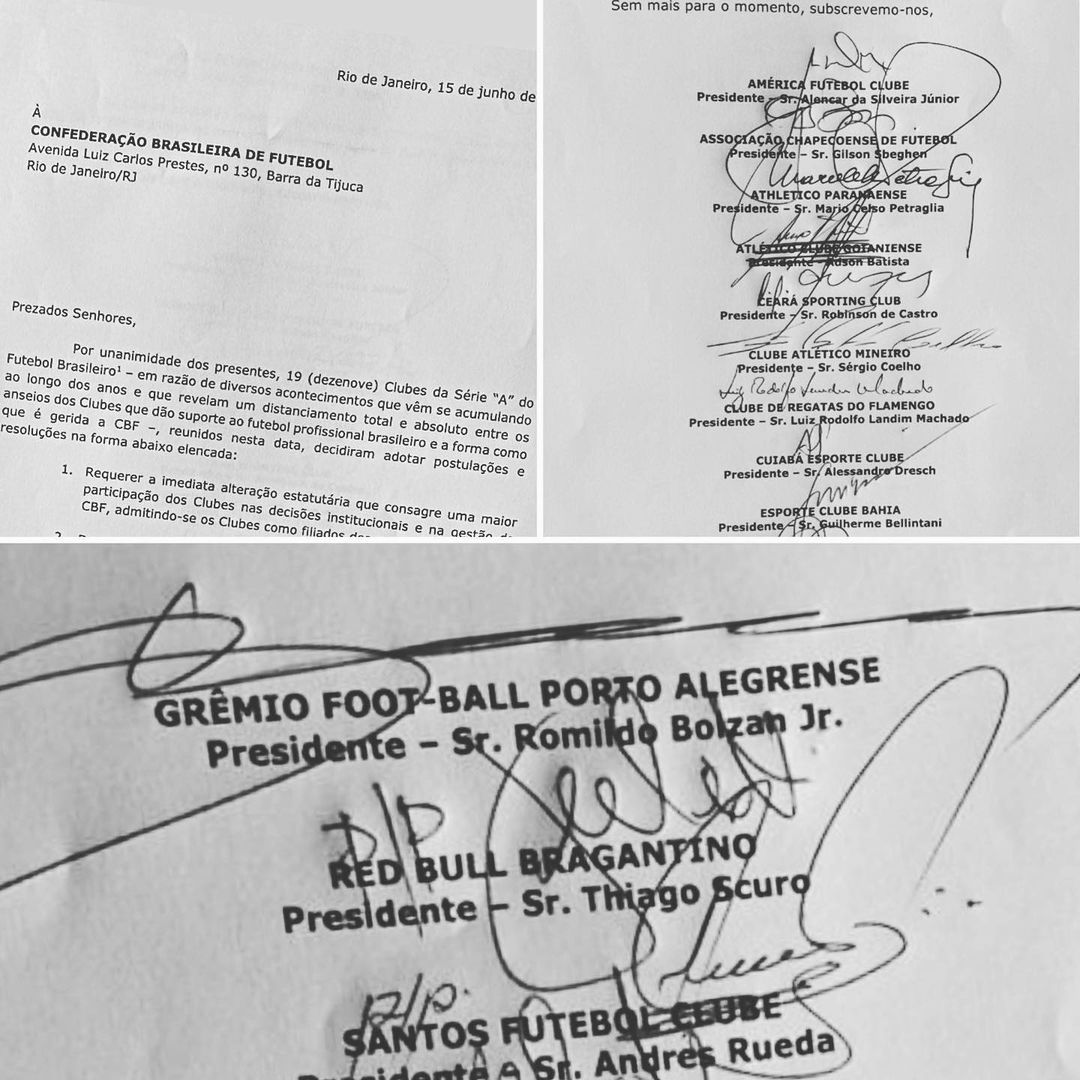 Rio de Janeiro, 15 de junho de
À
CONFEDERAÇÃO BRASILEIRA DE FUTEBOL
Avenida Luiz Carlos Prestes, nº 130, Barra da Tijuca
Rio de Janeiro/RJ
Prezados Senhores,
Por unanimidade dos presentes, 19 (dezenove) Clubes da Série “A” do
Futebol Brasileiro¹ – em razão de diversos acontecimentos que vêm se acumulando
ao longo dos anos e que revelam um distanciamento total e absoluto entre os
anseios dos Clubes que dão suporte ao futebol profissional brasileiro e a forma como
que é gerida a CBF –, reunidos nesta data, decidiram adotar postulações e
resoluções na forma abaixo elencada:
1. Requerer a imediata alteração estatutária que consagre uma maior
participação dos Clubes nas decisões institucionais e na gestão da
CBF, admitindo-se os Clubes como filiados
2.
Sem mais para o momento, subscrevemo-nos,
AMÉRICA FUTEBOL CLUBE
Presidente – Sr. Alencar da Silveira Júnior
ASSOCIAÇÃO CHAPECOENSE DE FUTEBOL
Presidente – Sr. Gilson Sbeghen
ATHLETICO PARANAENSE
Presidente – Sr. Mario Celso Petraglia
ATLÉTICO CLUBE GOIANIENSE
Presidente – Adson Batista
CEARÁ SPORTING CLUB
Presidente – Sr. Robinson de Castro
CLUBE ATLÉTICO MINEIRO
Presidente – Sr. Sérgio Coelho
Luiz Rodolfo Landim Machado
CLUBE DE REGATAS DO FLAMENGO
Presidente – Sr. Luiz Rodolfo Landim Machado
CUIABÁ ESPORTE CLUBE
Presidente – Sr. Alessandro Dresch
ESPORTE CLUBE BAHIA
Presidente – Sr. Guilherme Bellintani
GRÊMIO FOOT-BALL PORTO ALEGRENSE
Presidente – Sr. Romildo Bolzan Jr.
P/P
RED BULL BRAGANTINO
Presidente – Sr. Thiago Scuro
P/p.
SANTOS FUTEBOL CLUBE
Presidente – Sr. Andres Rueda